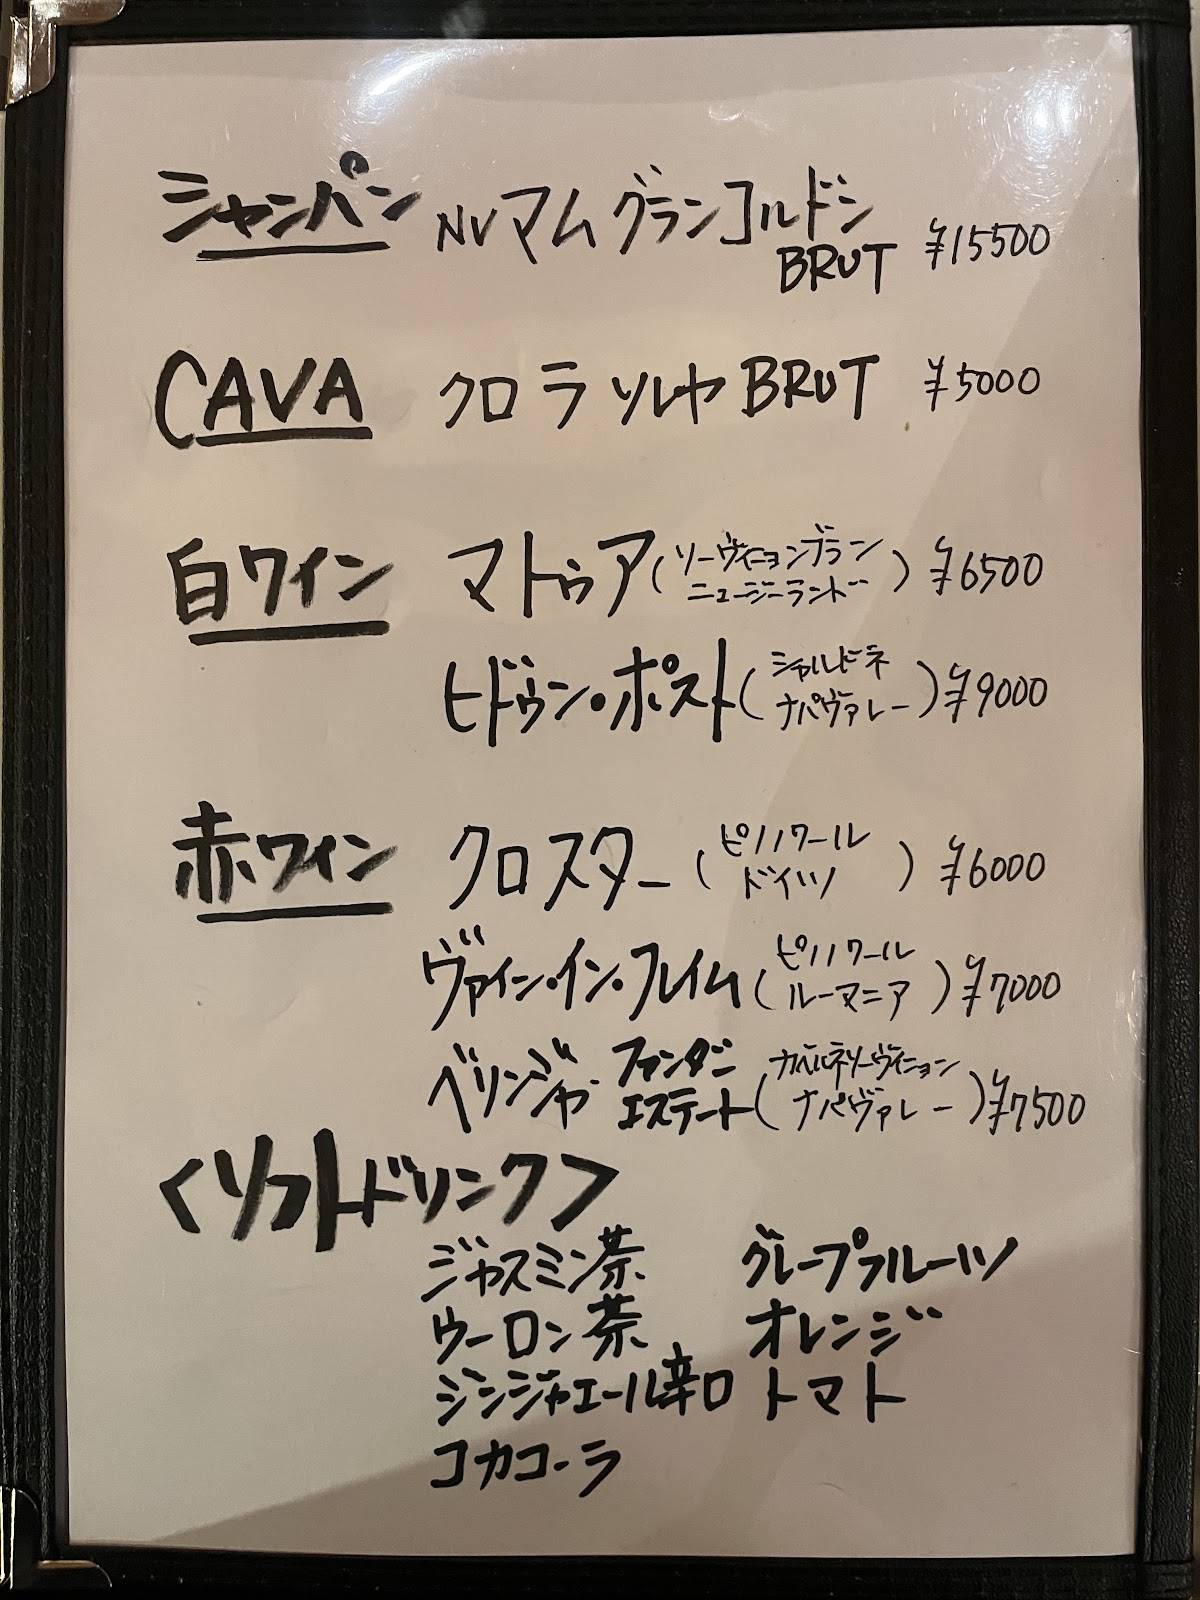 シャンパン NV マム グランコルドン
BRUT ¥15500
CAVA クロ ラ ソレヤ BRUT ¥5000
白ワイン マトゥア (ソーヴィニョンブラン
ニュージーランド) ¥6500
ヒドゥン・ポスト (シャルドネ
ナパヴァレー) ¥9000
赤ワイン クロスター (ピノノワール
ドイツ) ¥6000
ヴァイン・イン・フレイム (ピノノワール
ルーマニア) ¥7000
ベリンジャー ファンダン
エステート (カベルネソーヴィニョン
ナパヴァレー) ¥7500
<ソフトドリンク>
ジャスミン茶 グレープフルーツ
ウーロン茶 オレンジ
ジンジャエール辛口 トマト
コカコーラ